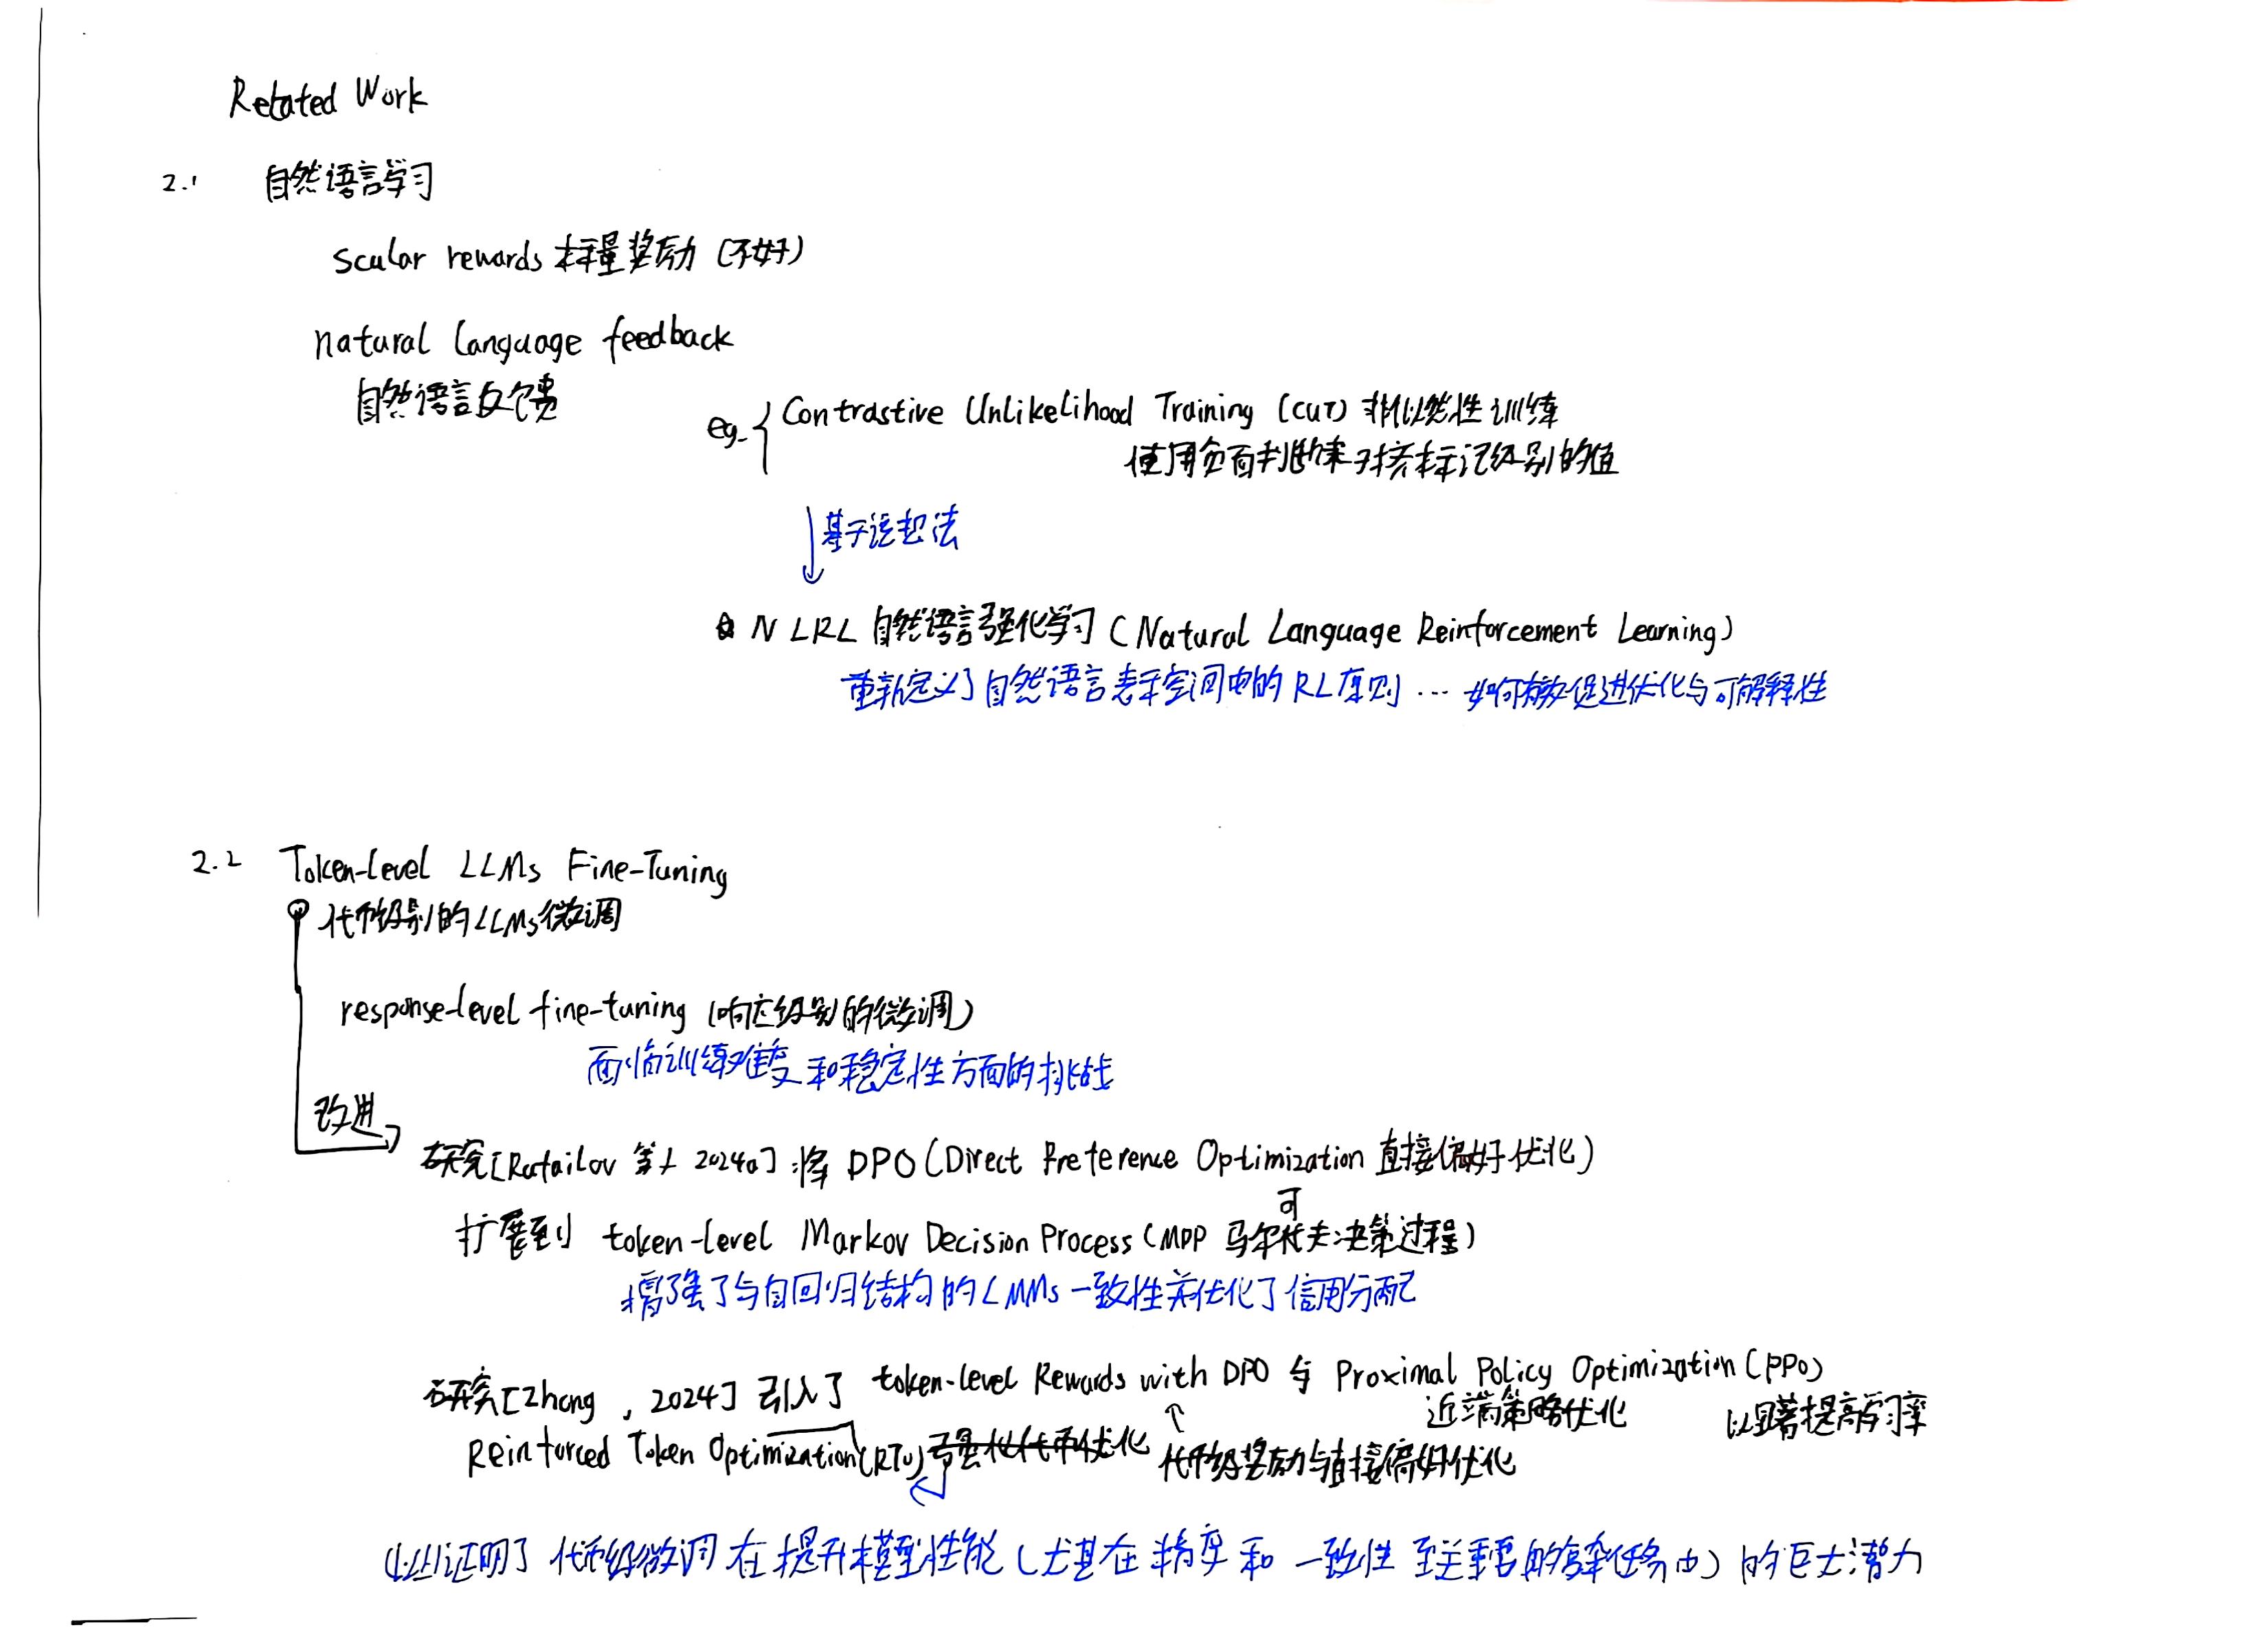 Related Work
2.1 自然语言学习
Scalar rewards 标量奖励 (不好)
natural language feedback
自然语言反馈
eg. Contrastive Unlikelihood Training (CUT) 非似然性训练
使用负面判断来对齐标记级别的值
基于该想法
NLRL 自然语言强化学习 (Natural Language Reinforcement Learning)
重新定义了自然语言表示空间中的RL原则 … 如何有效促进优化与可解释性
2.2 Token-level LLMs Fine-Tuning
代币级别的LLMs微调
response-level fine-tuning (响应级别的微调)
面临训练难度和稳定性方面的挑战
改进
研究[Rafailov 等人 2024a] 将 DPO (Direct Preference Optimization 直接偏好优化)
扩展到 token-level Markov Decision Process (MDP 马尔可夫决策过程)
增强了与自回归结构的LMMs一致性并优化了信用分配
研究[Zhong, 2024] 引入了 token-level Rewards with DPO 与 Proximal Policy Optimization (PPO)
近端策略优化 以显著提高学习率
Reinforced Token Optimization (RTO) 强化代币优化 代币级奖励与直接偏好优化
以上证明了 代币级微调 在提升模型性能 (尤其在精度和一致性至关重要的复杂任务中) 的巨大潜力